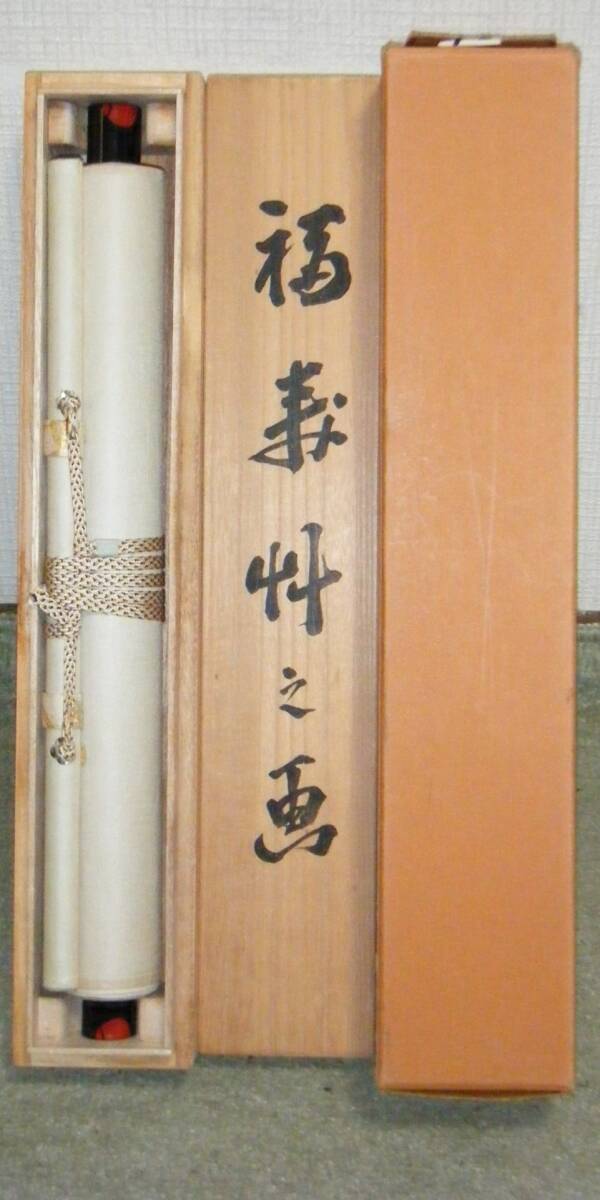 福寿艸之画